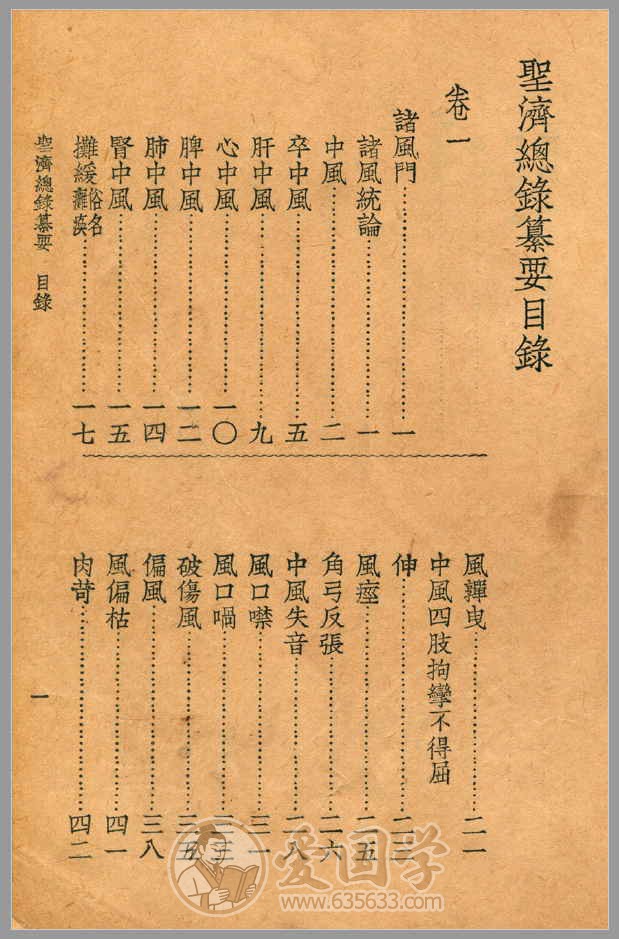 聖濟總錄纂要目錄
卷一
諸風門……一
諸風統論……一
中風……二
卒中風……五
肝中風……九
心中風……一〇
脾中風……一二
肺中風……一四
腎中風……一五
攤緩俗名癱瘓……一七
風嚲曳……二一
中風四肢拘攣不得屈
伸……二三
風痙……二五
角弓反張……二六
中風失音……二八
風口噤……三一
風口喎……三三
破傷風……三五
偏風……三八
風偏枯……四一
肉苛……四二
聖濟總錄纂要 目錄
一
爱国学
www.635633.com